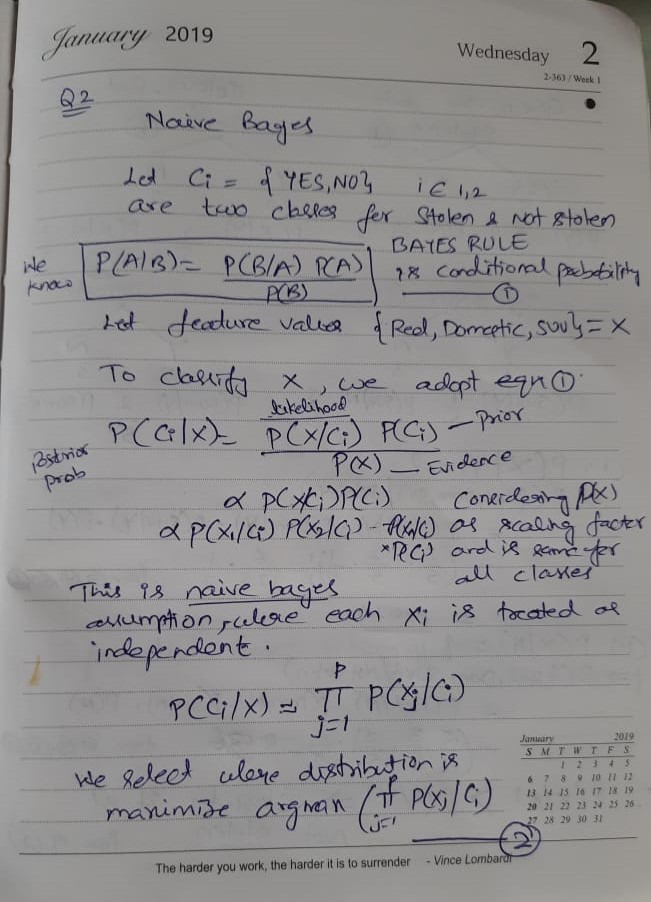 January 2019
Wednesday 2
2-363 / Week 1
Q2
Naive Bayes
Let Ci = { YES, NO} i ∈ 1,2
are two classes for Stolen & Not stolen
We know P(A/B) = P(B/A) P(A) / P(B) BAYES RULE
is conditional probability
①
Let feature values { Red, Domestic, SUV} = X
To classify X, we adopt eqn ①
likelihood
P(Ci/X) = P(X/Ci) P(Ci) — Prior
Posterior prob
P(X) — Evidence
α P(X/Ci) P(Ci) Considering P(X)
α P(X1/Ci) P(X2/Ci) - P(X/Ci) as scaling factor
* P(Ci) and is same for
all classes
This is naive bayes
assumption, where each Xi is treated as
independent.
P(Ci/X) = p ∏ j=1 P(Xj/Ci)
We select where distribution is
maximize argmax (p ∏ j=1 P(Xj/Ci)
②
January 2019
S M T W T F S
1 2 3 4 5
6 7 8 9 10 11 12
13 14 15 16 17 18 19
20 21 22 23 24 25 26
27 28 29 30 31
The harder you work, the harder it is to surrender - Vince Lombardi